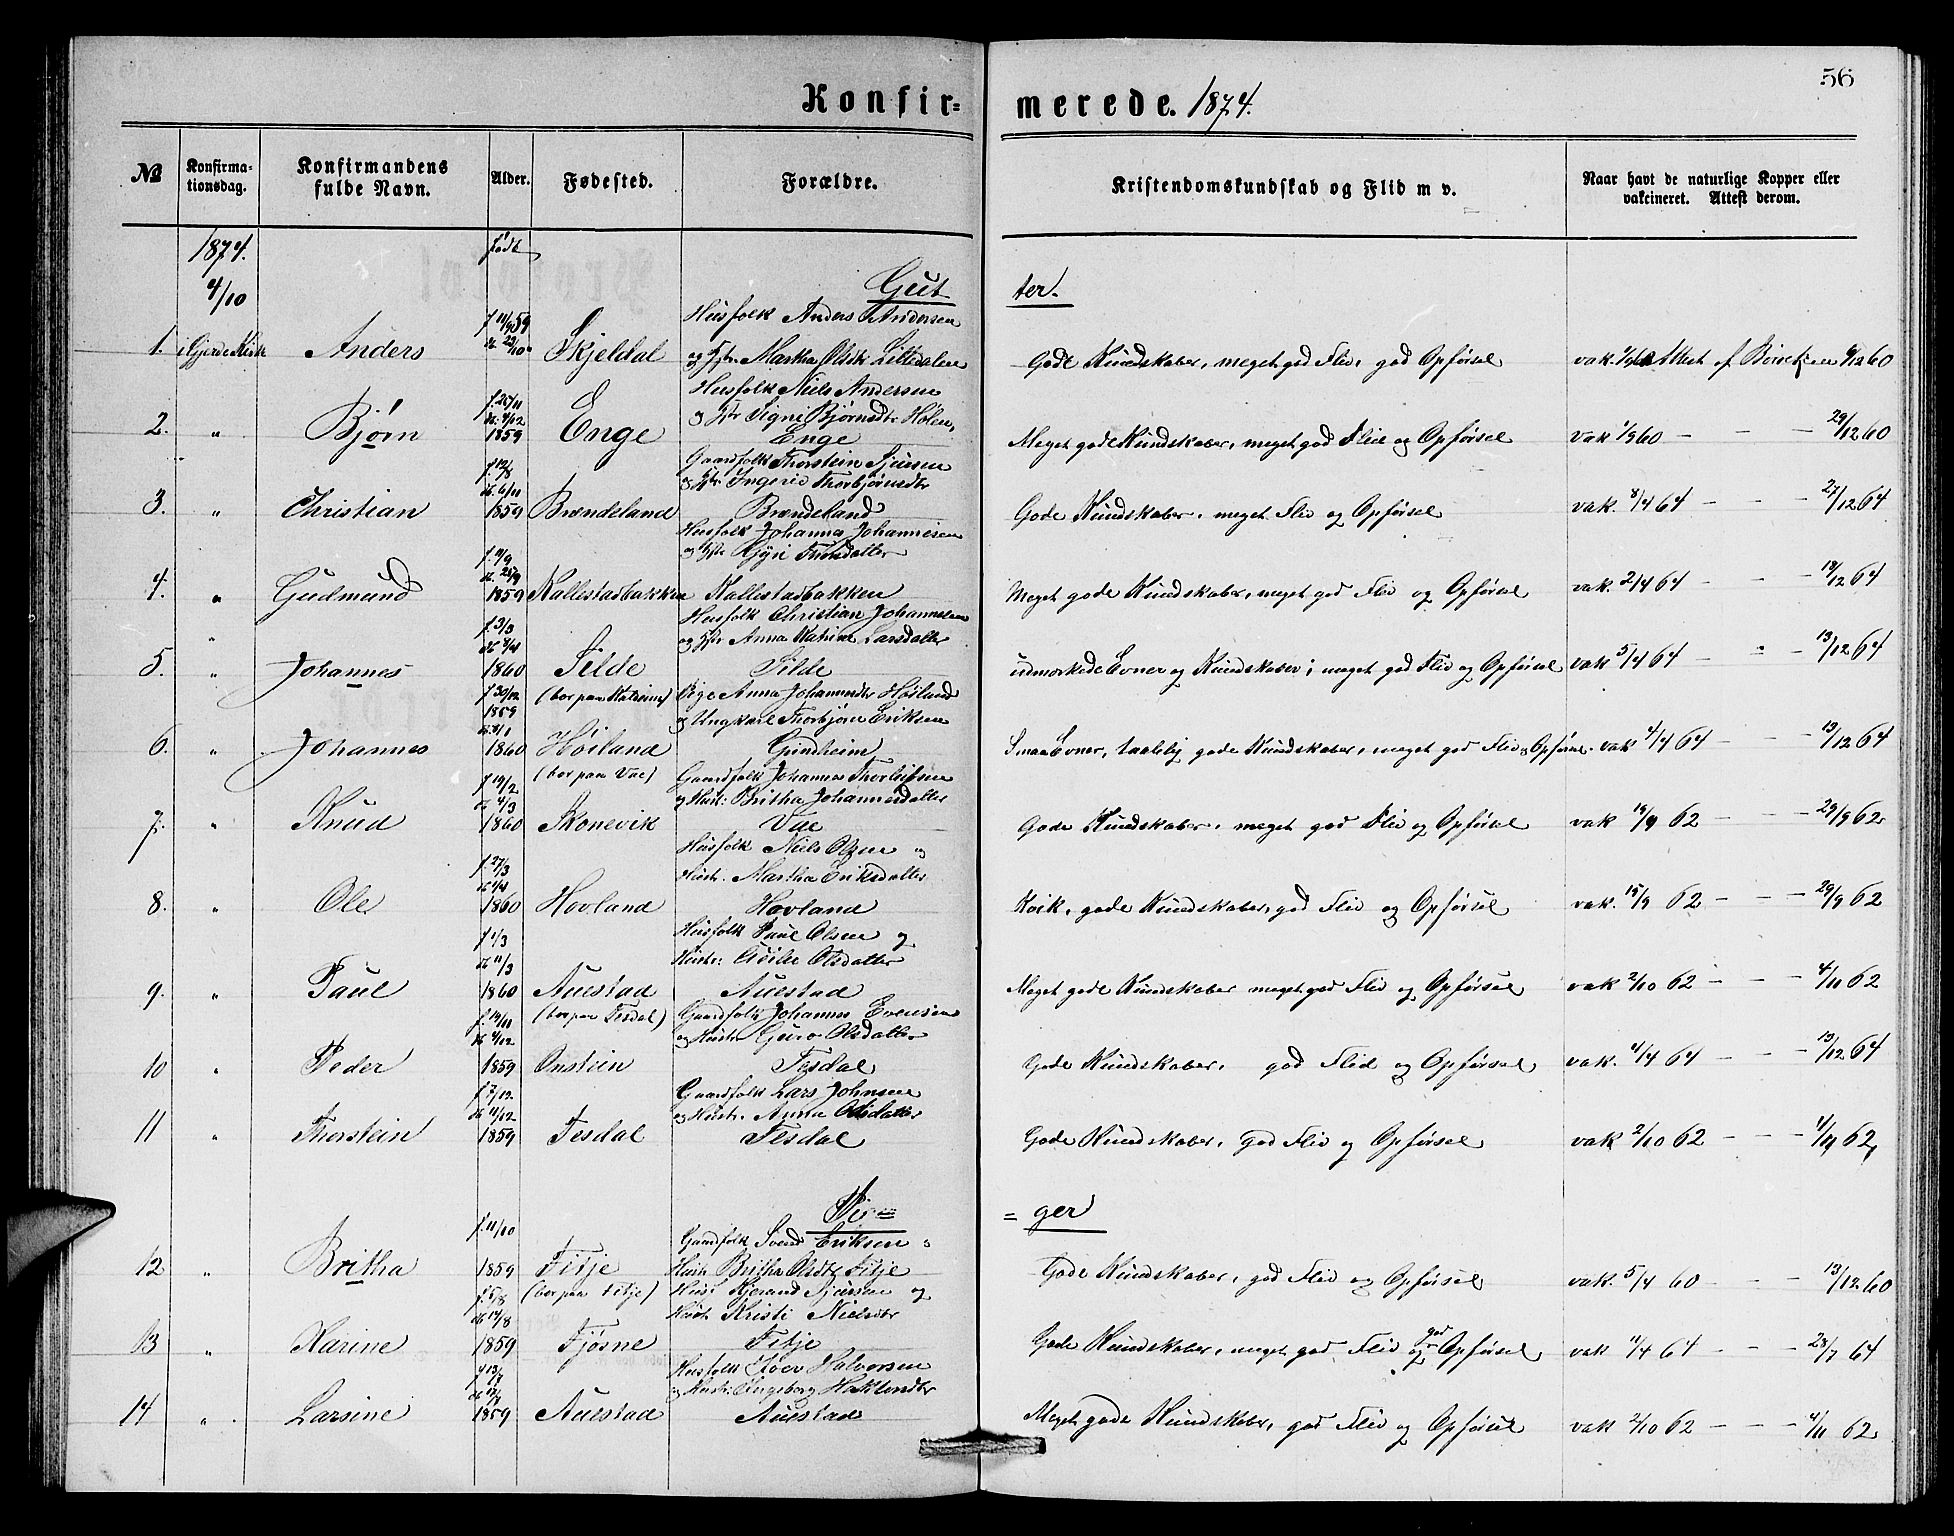 56
Konfir= merede. 1874.
№ Konfirma-tionsdag. Konfirmandens fulde Navn. Alder. Fødested. Forældre. Kristendomskundskab og Flid m v. Naar havt de naturlige Kopper eller vakcineret. Attest derom.
1874. født
4/10 Gut ter.
f 11/9 59 Husfolk Anders Andersen
1. i Gjerde Kirk Anders Skjeldal og Hstr. Martha Olsdt. Littedalen Gode Kundskaber, meget god Flid, god Opførsel vak. Attest af 60
Husfolk Niels Andersen
f. 25/11 og Hstr Signi Bjørnsdtr Holen,
2. " Bjørn 1859 Enge Enge Meget gode Kundskaber, meget god Flid og Opførsel vak 1/9 60 — — — 29/12 60
f 12/8 Gaardfolk Thorstein Sjursen
db 6/11 og Hstr Ingerid Thorbjørnsdtr
3. " Christian 1859 Brændeland Brændeland Gode Kundskaber, meget Flid og Opførsel vak. 8/4 64 — — 27/12 64
Husfolk Johanna Johannesen
f. 11/9 og Hstr Gyri Thorsdatter
db. 25/9
4. " Gudmund 1859 Kallestadbakken Kallestadbakken Meget gode Kundskaber, meget god Flid og Opførsel vak. 2/4 64 — — 13/12 64
Husfolk Christian Johannesen
f. 3/3 og Hstr Anna Katrine Larsdatter
db 8/4
5. " Johannes 1860 Silde Silde udmærkede Evner og Kundskaber; meget god Flid og Opførsel vak 5/4 64 — " — 13/12 64
f 30/12 (bor paa ) Pige Anna Johannesdtr Høiland
1859 og Ungkarl Thorbjørn Eriksen
6. " Johannes 1860 Høiland Grindheim Smaa Evner, taalelig gode Kundskaber, meget god Flid og Opførsel. vak 4/4 64 — — 13/12 64
f 19/2 (bor paa Vae) Gaardfolk Johannes Thorleifsen
db 4/3 og Hust: Britha Johannesdatter
7. " Knud 1860 Skonevik Vae Gode Kundskaber, meget god Flid og Opførsel vak 19/9 62 — — 29/9 62
Husfolk Niels Olsen og
f. 27/3 Hustr. Martha Eriksdatter
8. " Ole 1860 Hovland Hovland Kvik, gode Kundskaber, god Flid og Opførsel vak. 15/9 62 — — 29/9 62
f 1/3 Husfolk Paul Olsen og
db 11/3 Hustr: Olsdatter
9. " Paul 1860 Auestad Auestad Meget gode Kundskaber meget god Flid og Opførsel vak 2/10 62 — — 4/11 62
f. 14/11 (bor paa Tesdal) Gaardfolk Johannes Evensen
db 4/12 og Hustr Guro Olsdatter
10 " Peder 1859 Onstein Tesdal Gode Kundskaber, god Flid og Opførsel vak. 4/4 64 — — — 13/12 64
f 7/12 Gaardfolk Lars Johnsen
db 11/12 og Hustr. Anna Olsdatter
11 " Thorstein 1859 Tesdal Tesdal Gode Kundskaber, god Flid og Opførsel vak 2/10 62 — — — 4/11 62
Pi= = ger
f. 11/10 Gaardfolk Svend Eriksen "
12 " Britha 1859 Fitje Hustr Britha Olsdtr Fitje Gode Kundskaber, god Flid og Opførsel vak. 5/4 60 — — 13/12 60
f 5/8 (bor paa Fitje) Husf Sjursen og
db 14/8 Hustr Kristi Nielsdtr
13 " Karine 1859 Fjøsne Fitje Gode Kundskaber, meget god Flid og god Opførsel vak 11/4 64 — — 23/7 64
f 13/7 Husfolk Iver Halvorsen
db 17/7 og Hustr: Ingeborg
14 " Larsine 1859 Auestad Auestad Meget gode Kundskaber, god Flid og Opførsel vak 2/10 62 — — 4/11 62